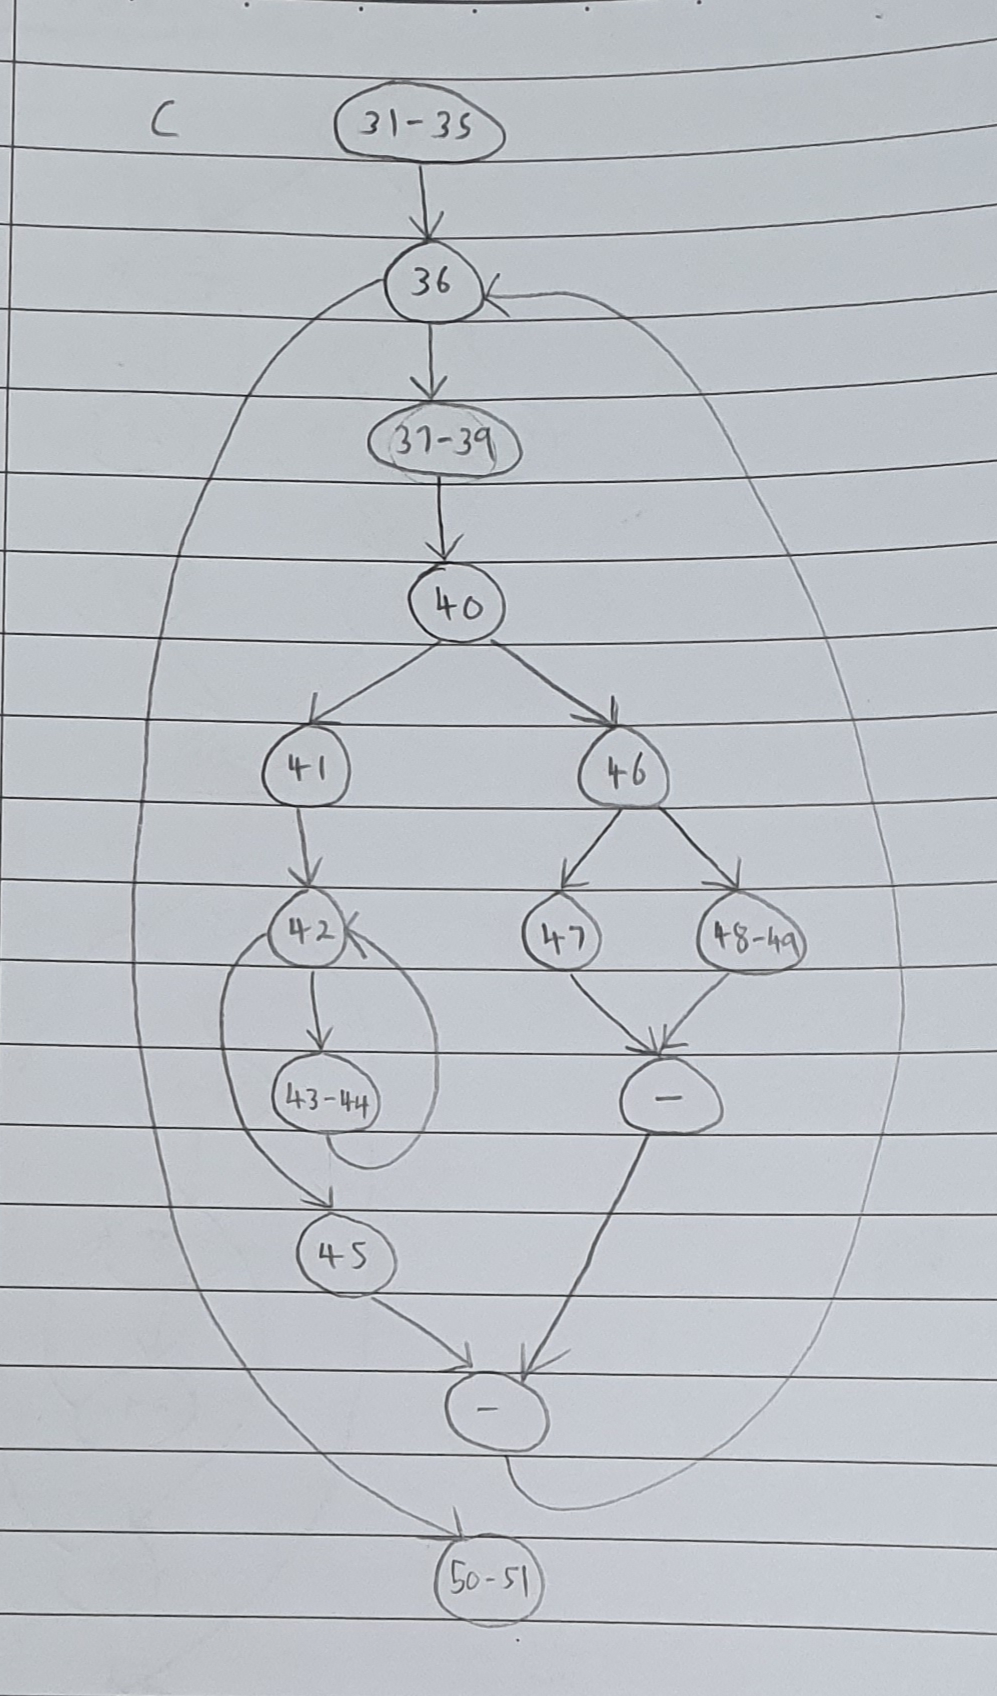 C 31-35
36
37-39
40
41 46
42 47 48-49
43-44 -
45
-
50-51